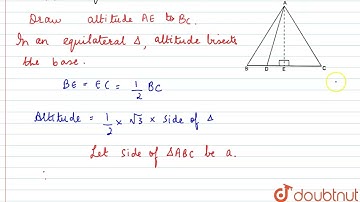 Draw altitude AE to BC.
In an equilateral Δ, altitude bisects
the base.
BE = EC = 1/2 BC
Altitude = 1/2 × √3 × side of Δ
Let side of ΔABC be a.
A
B D E C
doubtnut